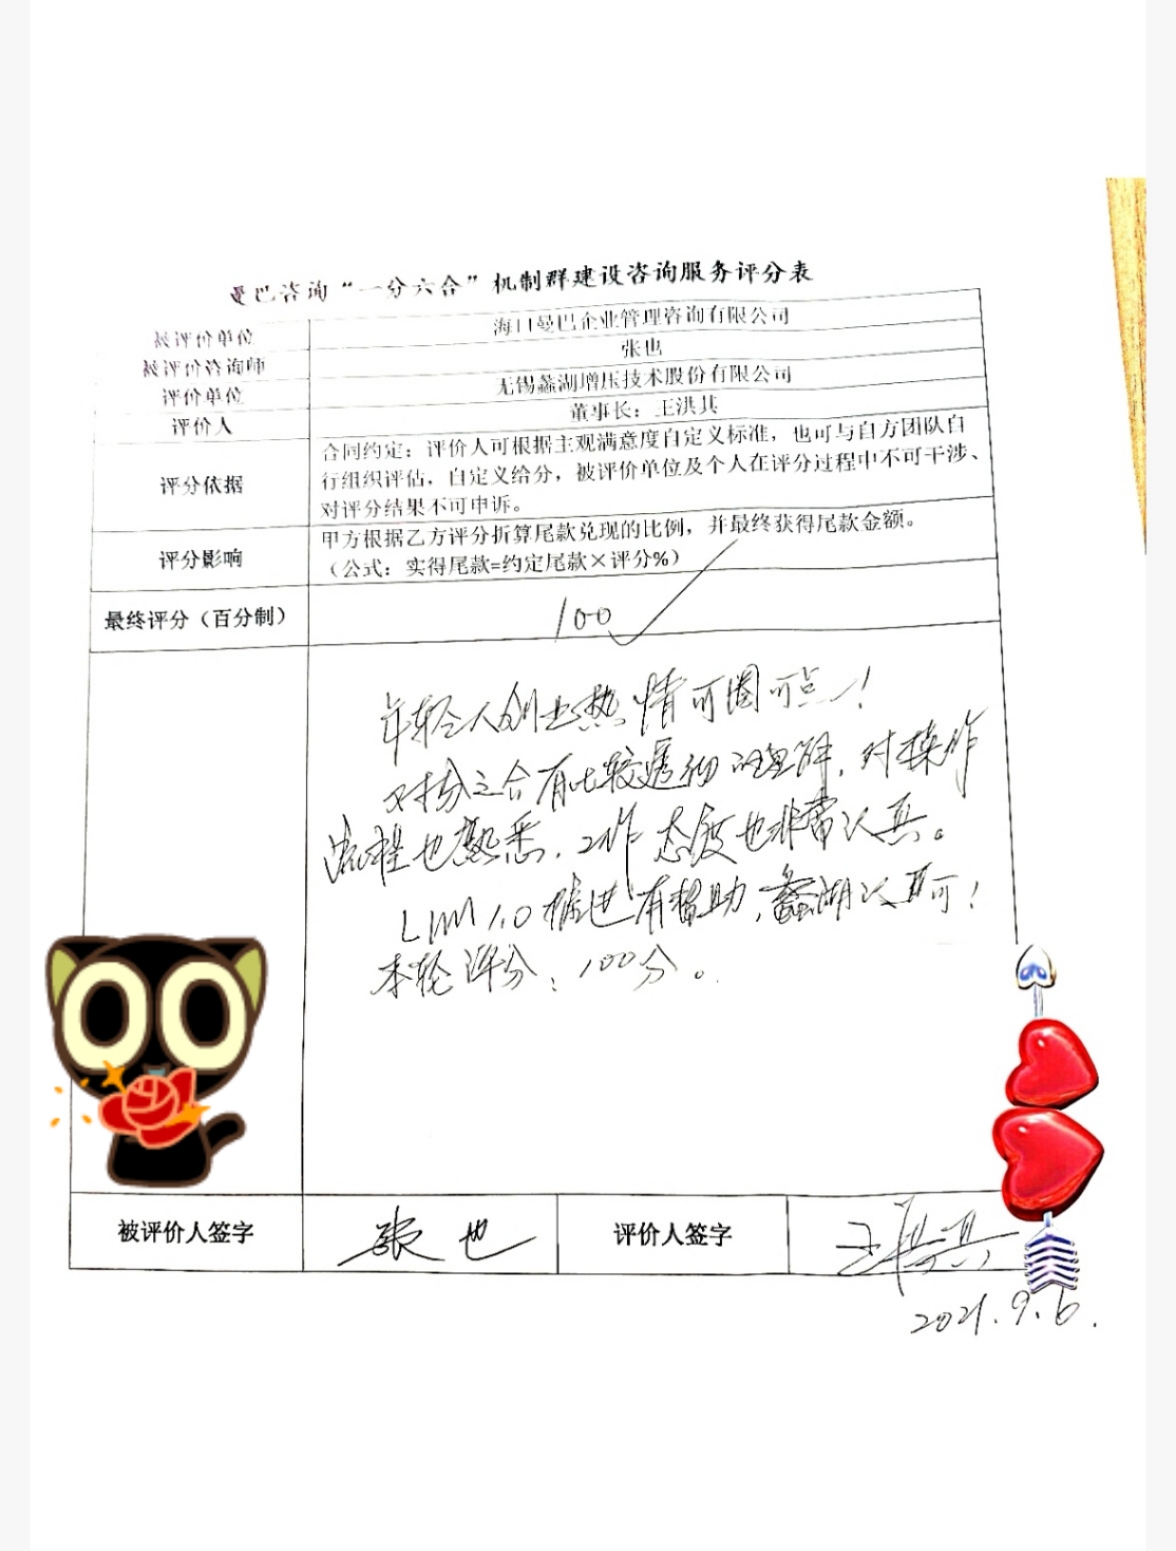 曼巴咨询“一分六合”机制群建设咨询服务评分表
被评价单位 海口曼巴企业管理咨询有限公司
被评价咨询师 张也
评价单位 无锡蠡湖增压技术股份有限公司
评价人 董事长：王洪其
评分依据
合同约定：评价人可根据主观满意度自定义标准，也可与自方团队自
行组织评估，自定义给分，被评价单位及个人在评分过程中不可干涉、
对评分结果不可申诉。
评分影响
甲方根据乙方评分折算尾款兑现的比例，并最终获得尾款金额。
（公式：实得尾款=约定尾款×评分%）
最终评分（百分制） 100
年轻人创业热情可圈可点！
对分之合有比较透彻的理解，对操作
流程也熟悉，工作态度也非常认真。
1.0推进有帮助，蠡湖认可！
本轮评分：100分。
被评价人签字 张也 评价人签字 王洪其
2021.9.6.